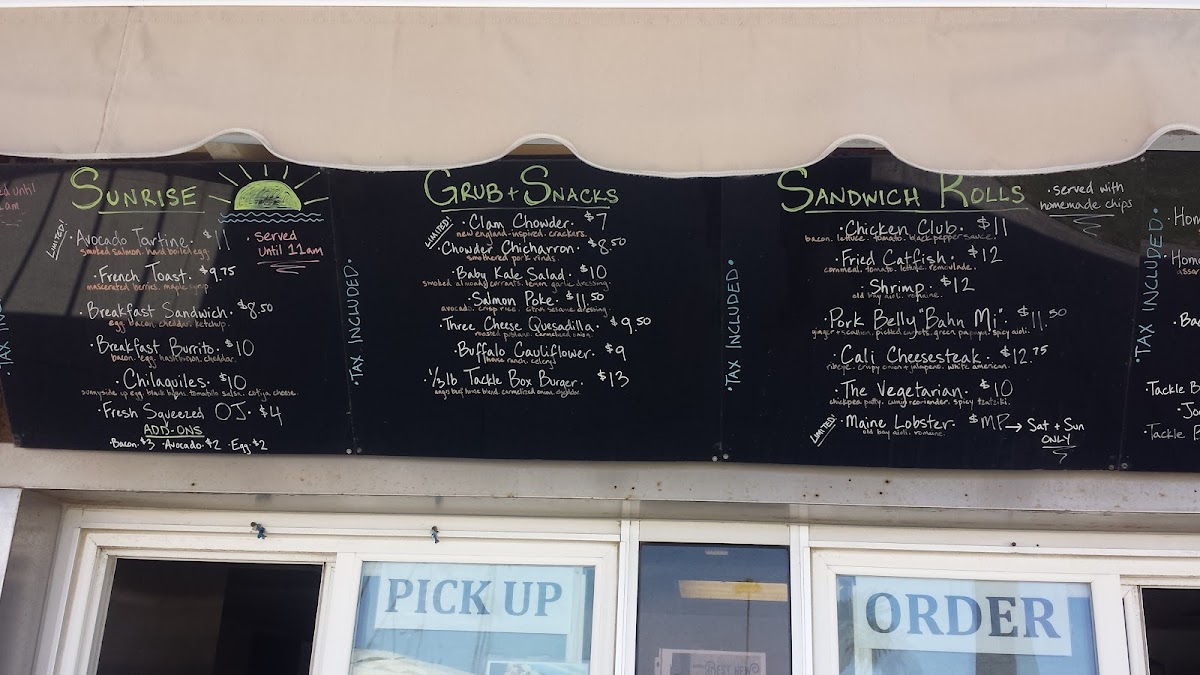 SUNRISE
LIMITED!
· Avocado Tartine · $11
smoked salmon. hard boiled egg.
· served
until 11am
· French Toast · $9.75
mascerated berries. maple syrup.
· Breakfast Sandwich · $8.50
egg. bacon. cheddar. ketchup.
· Breakfast Burrito · $10
bacon. egg. hashbrown. cheddar.
· Chilaquiles · $10
sunnyside up egg. black beans. tomatillo salsa. cotija cheese.
· Fresh Squeezed OJ · $4
ADD-ONS
Bacon · $3 · Avocado · $2 · Egg · $2
· TAX INCLUDED ·
GRUB + SNACKS
LIMITED!
· Clam Chowder · $7
new england-inspired. crackers.
· Chowder Chicharron · $8.50
smothered pork rinds.
· Baby Kale Salad · $10
smoked almonds. currants. lemon garlic dressing.
· Salmon Poke · $11.50
avocado. crisp rice. citrus sesame dressing.
· Three Cheese Quesadilla · $9.50
roasted poblano. carmelized onion.
· Buffalo Cauliflower · $9
house ranch. celery.
· 1/3 lb Tackle Box Burger · $13
house blend. carmelized onion. cheddar.
· TAX INCLUDED ·
SANDWICH ROLLS
· served with
homemade chips
· Chicken Club · $11
bacon. lettuce. tomato. black pepper sauce.
· Fried Catfish · $12
cornmeal. tomato. lettuce. remoulade.
· Shrimp · $12
old bay aioli. romaine.
· Pork Belly "Bahn Mi" · $11.50
ginger + scallion. pickled carrots. green papaya. spicy aioli.
· Cali Cheesesteak · $12.75
ribeye. crispy onion + jalapeno. white american.
· The Vegetarian · $10
chickpea patty. cumin + coriander. spicy tzatziki.
LIMITED!
· Maine Lobster · $MP → Sat + Sun
ONLY
old bay aioli. romaine.
· TAX INCLUDED ·
Tackle
· Tackle
PICK UP
ORDER